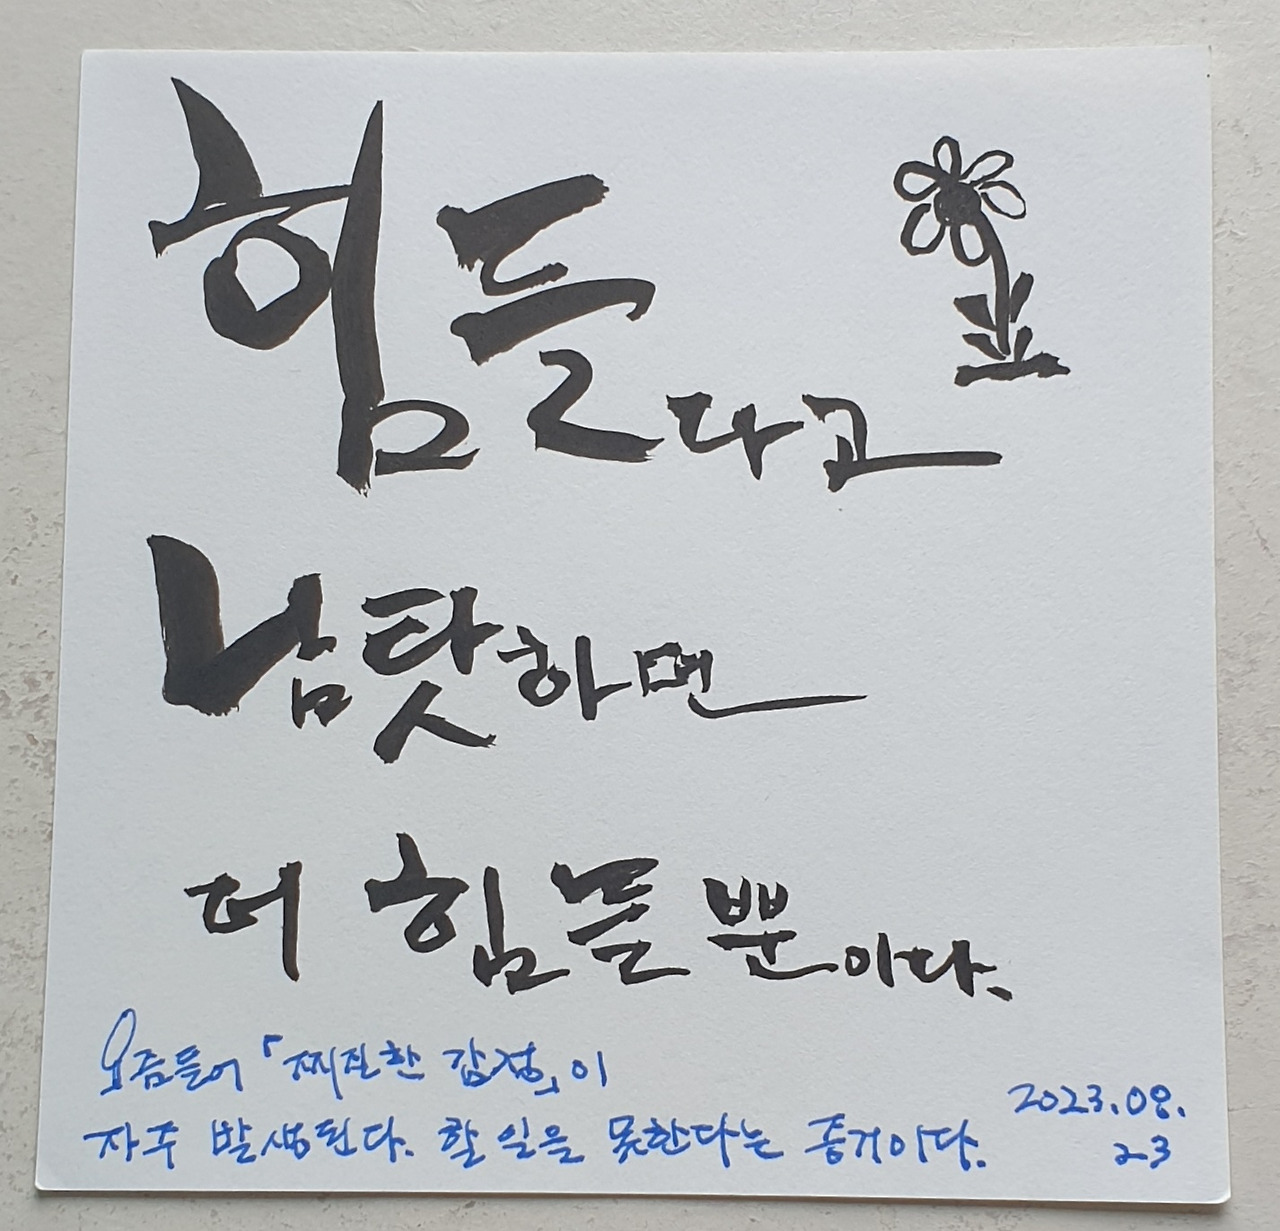 힘들다고
남탓하면
더 힘들뿐이다.
요즘들어 「찌진한 감정」이
자주 발생된다. 할 일을 못한다는 증거이다.
2023.08.
23